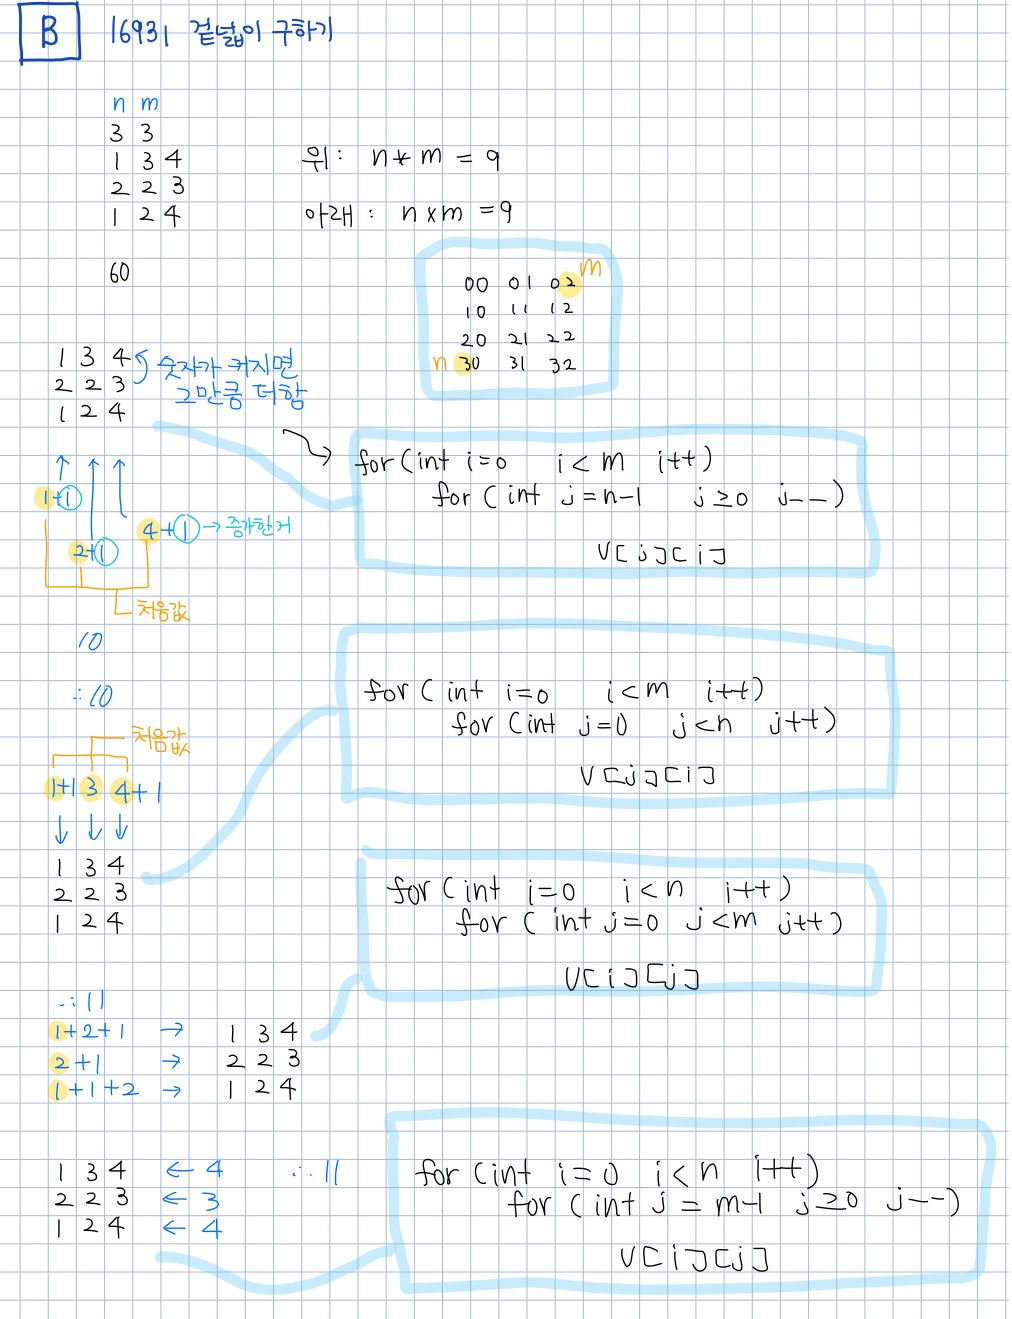 B 16931 겉넓이 구하기
n m
3 3
1 3 4
2 2 3
1 2 4
위: n * m = 9
아래: n x m = 9
60
m
00 01 02
10 11 12
20 21 22
n 30 31 32
1 3 4
2 2 3
1 2 4
숫자가 커지면
그만큼 더함
1+1
2+1
4+1 → 증가한거
처음값
10
for (int i=0 i<m i++)
for (int j=n-1 j≥0 j--)
v[j][i]
∴10
처음값
1+1 3 4+1
1 3 4
2 2 3
1 2 4
for (int i=0 i<m i++)
for (int j=0 j<n j++)
v[j][i]
∴11
1+2+1 → 1 3 4
2+1 → 2 2 3
1+1+2 → 1 2 4
for (int i=0 i<n i++)
for (int j=0 j<m j++)
v[i][j]
1 3 4 ← 4 ∴11
2 2 3 ← 3
1 2 4 ← 4
for (int i=0 i<n i++)
for (int j=m-1 j≥0 j--)
v[i][j]